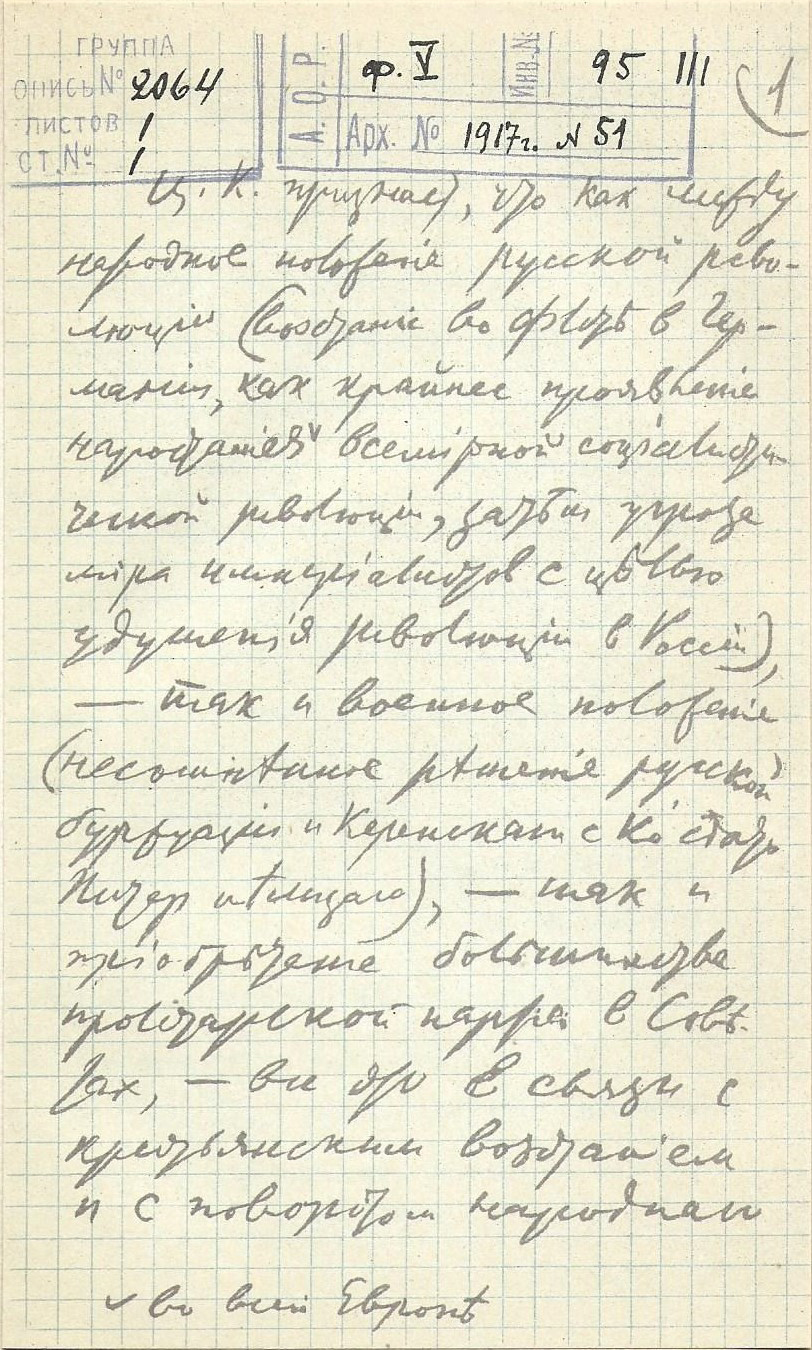 ГРУППА
ОПИСЬ № 2064
ЛИСТОВ 1
СТ. № 1
А.О.Р.
ф. V
Инв. №
95 III
Арх. № 1917г. N 51
1
Ц. К. признает, что как между
народное положение русской рево-
люціи (возстаніе во флотѣ в Гер-
маніи, как крайнее проявленіе
наростанія ✓ всемірной соціалисти-
ческой революціи, затѣм угроза
міра имперіалистов с цѣлью
удушенія революціи в Россіи),
— так и военное положеніе
(несомнѣнное рѣшеніе русской
буржуазіи и Керенскаго с Ко сдать
Питер нѣмцам), — так и
пріобрѣтеніе большинства
пролетарской партіей в Совѣ-
тах, — все это в связи с
крестьянским возстаніем
и с поворотом народнаго
✓ во всей Европѣ